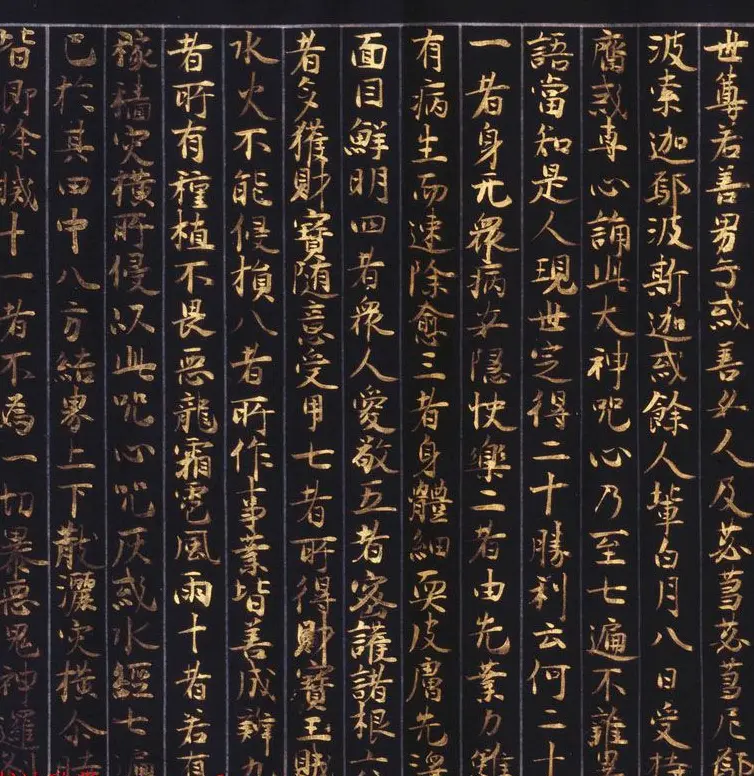 世尊若善男子或善女人及苾芻苾芻尼鄔
波索迦鄔波斯迦或餘人輩白月八日受持
齋或專心誦此大神呪心乃至七遍不雜異
語當知是人現世定得二十勝利云何二十
一者身无眾病安隱快樂二者由先業力雖
有病生而速除愈三者身體細耎皮膚光澤
面目鮮明四者眾人愛敬五者密護諸根六
者多獲財寶隨意受用七者所得財寶王賊
水火不能侵損八者所作事業皆善成辦九
者所有種植不畏惡龍霜雹風雨十者若有
稼穡灾橫所侵以此呪心呪灰或水經七遍
已於其田中八方結界上下散灑灾橫尒時
皆即除滅十一者不爲一切暴惡鬼神邏剎